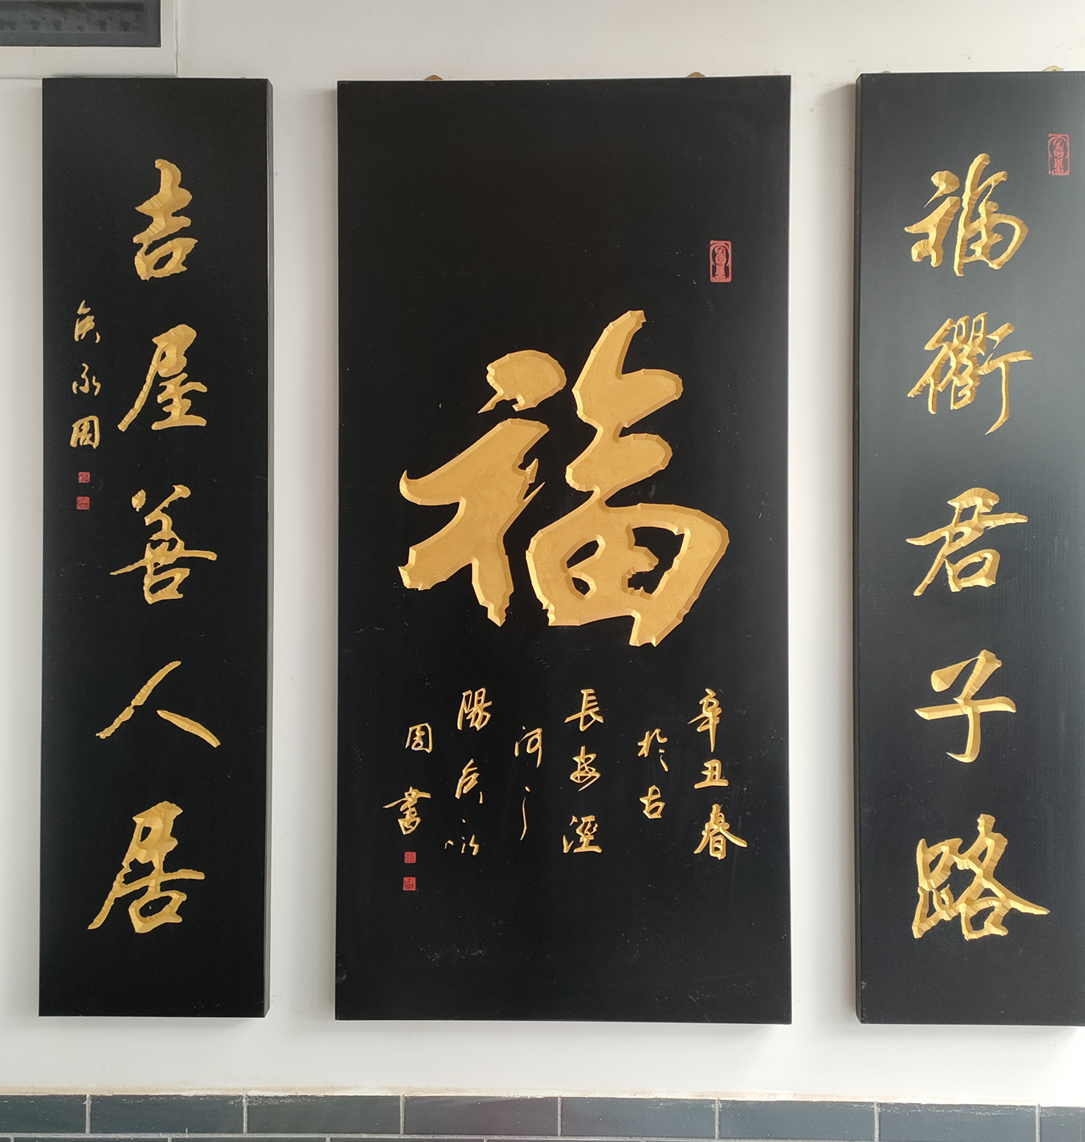 福衢君子路
福
辛丑春
於古
長安涇
河之
陽侯永
周書
吉屋善人居
侯永周